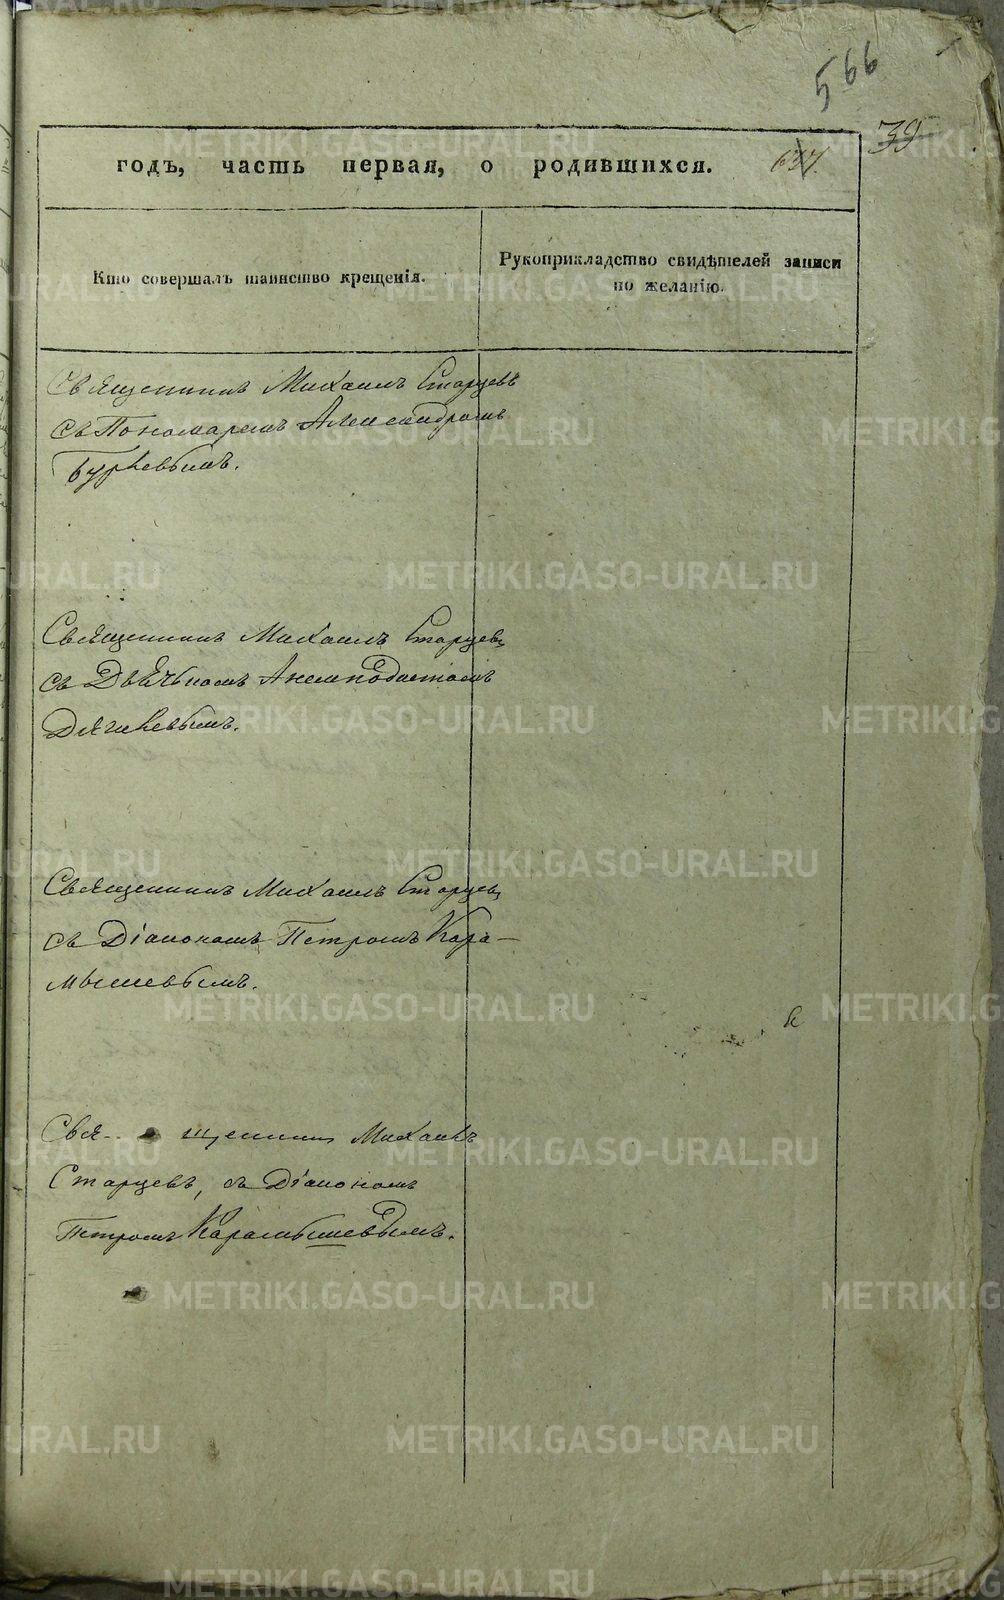 566
39
годъ, часть первая, о родившихся. 637.
Кто совершалъ таинство крещенія.
Рукоприкладство свидѣтелей записи
по желанію.
Священникъ Михаилъ Старцевъ
съ Пономаремъ Александромъ
Священникъ Михаилъ Старцевъ
съ Дьячькомъ Анемподистомъ
Священникъ Михаилъ Старцевъ
съ Діакономъ Петромъ Кара-
мышевымъ.
Свя- щенникъ Михаилъ
Старцевъ, съ Діакономъ
Петромъ Карамышевымъ.
METRIKI.GASO-URAL.RU